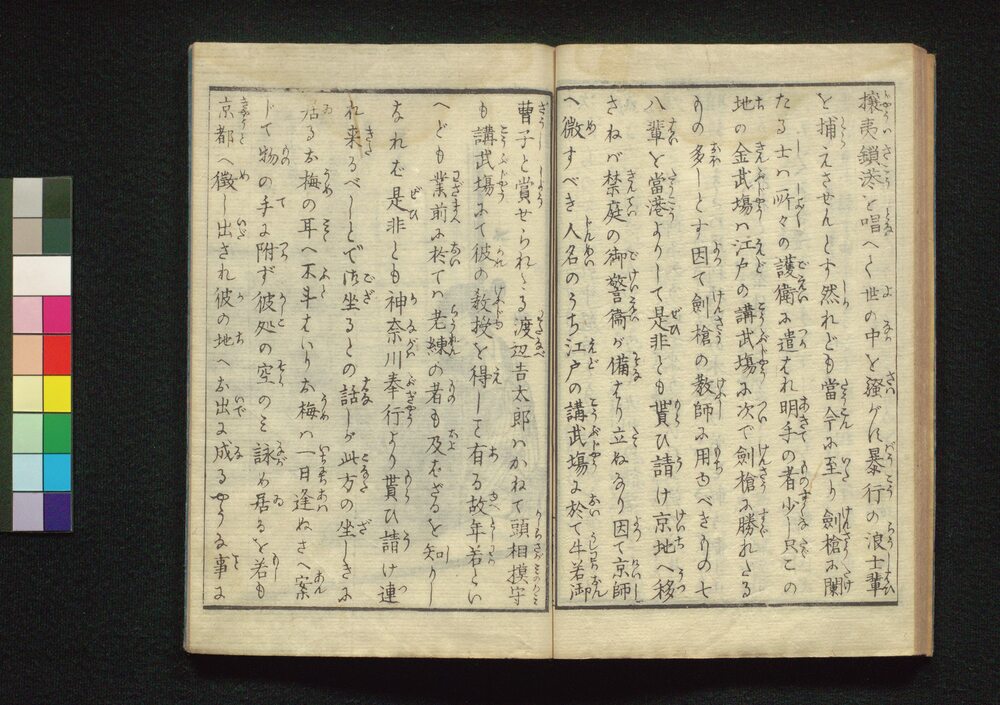 攘夷鎖港を唱へて世の中を騒がす暴行の浪士輩
を捕えさせんとす然れども當今に至り劍槍に闌
たる士ハ所々の護衛に遣はれ明手の者少し只この
地の金武場ハ江戸の講武場に次で劍槍に勝れたる
もの多しとす因て劍槍の教師に用ゆべきもの七
八輩を當港よりして是非とも貰ひ請け京地へ移
さねバ禁庭の御警衛が備はり立ねなり因て京師
へ徴すべき人名のうち江戸の講武場に於て牛若御
曹子と賞せられたる渡辺吉太郎ハかねて頭相摸守
も講武場にて彼の教授を得しこと有る故年若とい
へども業前に於てハ老練の者も及ばざるを知りし
なれば是非とも神奈川奉行より貰ひ請け連
れ来るべしとて御坐るとの話しが此方の坐しきに
居るお梅の耳へ不斗はいりお梅ハ一日逢ぬさへ案
じて物の手に附ず彼処の空のミ詠め居るを若も
京都へ徴し出され彼の地へお出に成るやうな事に